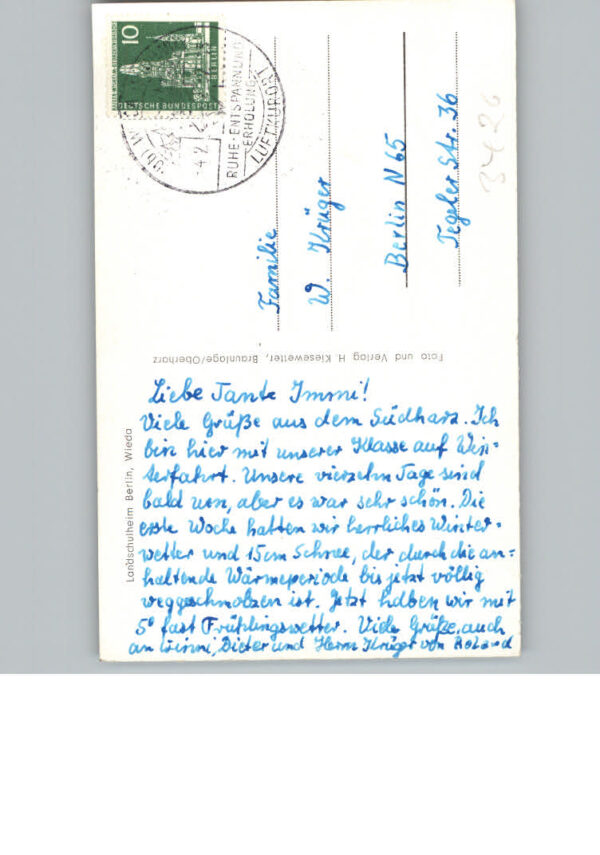 Liebe Tante Immi!
Viele Grüße aus dem Südharz. Ich
bin hier mit unserer Klasse auf Win-
terfahrt. Unsere vierzehn Tage sind
bald um, aber es war sehr schön. Die
erste Woche hatten wir herrliches Winter-
wetter und 15cm Schnee, der durch die an-
haltende Wärmeperiode bis jetzt völlig
weggeschmolzen ist. Jetzt haben wir mit
5° fast Frühlingswetter. Viele Grüße, auch
an Dieter und Herrn Krüger von Roland
Familie
W. Krüger
Berlin N 65
Tegeler Str. 36
3426
Landschulheim Berlin, Wieda
Foto und Verlag H. Kiesewetter, Braunlage/Oberharz
10
DEUTSCHE BUNDESPOST
BERLIN
RUHE·ENTSPANNUNG
ERHOLUNG
LUFTKURORT